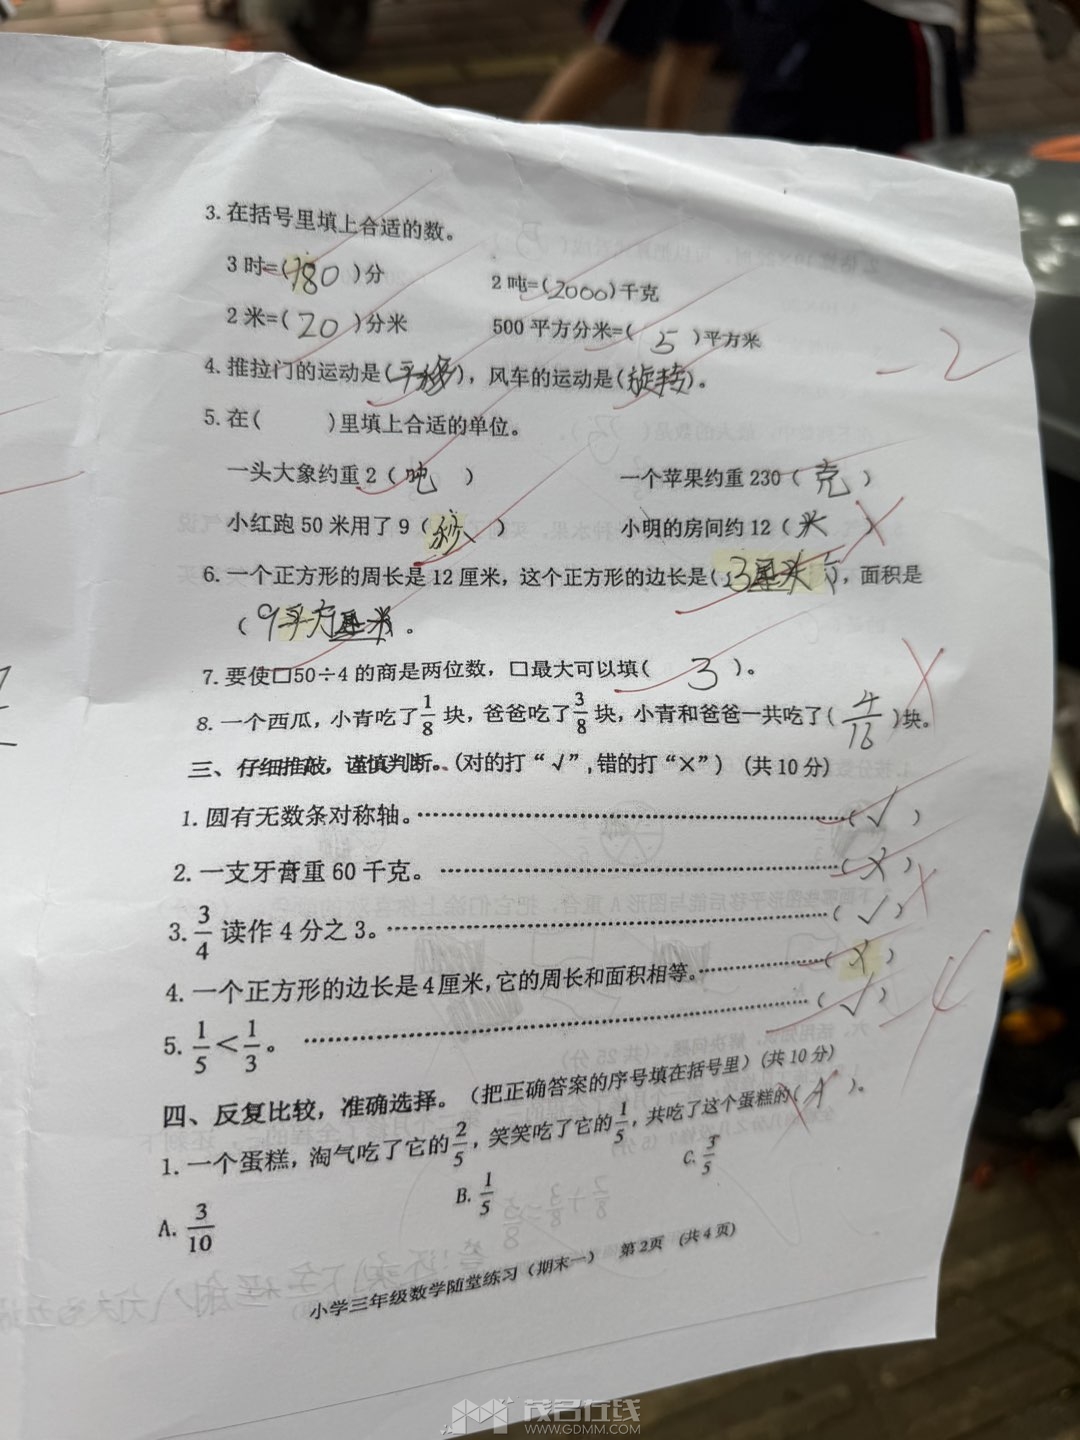 3.在括号里填上合适的数。
3时=(180)分 2吨=(2000)千克
2米=(20)分米 500平方分米=(5)平方米
4.推拉门的运动是(平移)，风车的运动是(旋转)。
5.在( )里填上合适的单位。
一头大象约重2(吨) 一个苹果约重230(克)
小红跑50米用了9(秒) 小明的房间约12(米
6.一个正方形的周长是12厘米，这个正方形的边长是(3厘米)，面积是
(9平方厘米。
7.要使□50÷4的商是两位数，□最大可以填(3)。
8.一个西瓜，小青吃了1/8块，爸爸吃了3/8块，小青和爸爸一共吃了(4/16)块。
三、仔细推敲，谨慎判断。(对的打“√”,错的打“×”) (共10分)
1.圆有无数条对称轴。(√)
2.一支牙膏重60千克。(×)
3. 3/4读作4分之3。(√)
4.一个正方形的边长是4厘米,它的周长和面积相等。(×)
5. 1/5<1/3。(√)
-2
-4
四、反复比较，准确选择。(把正确答案的序号填在括号里)(共10分)
1.一个蛋糕，淘气吃了它的2/5，笑笑吃了它的1/5，共吃了这个蛋糕的(A)。
A. 3/10 B. 1/5 C. 3/5
小学三年级数学随堂练习(期末一) 第2页 (共4页)
茂名在线
WWW.GDMM.COM